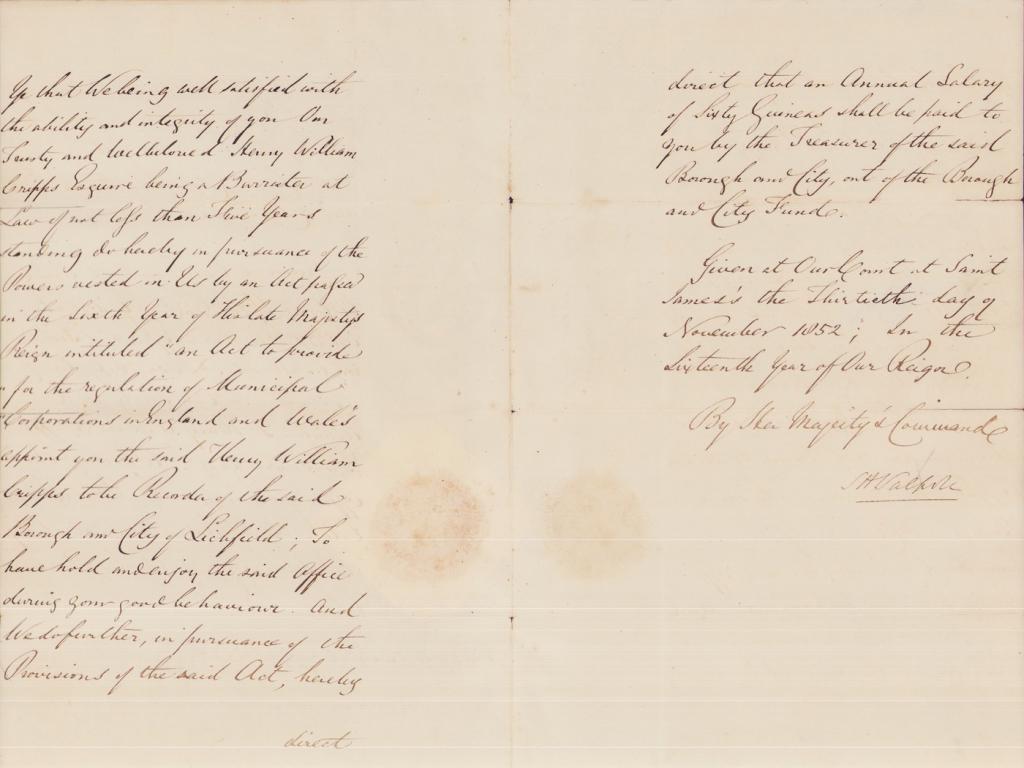 Ye that We being well satisfied with
the ability and integrity of you Our
Trusty and Wellbeloved Henry William
Cripps Esquire being a Barrister at
Law of not less than Five Years
standing do hereby in pursuance of the
Powers vested in Us by an Act passed
in the Sixth Year of His late Majesty's
Reign intituled "an Act to provide
"for the regulation of Municipal
"Corporations in England and Wales
appoint you the said Henry William
Cripps to be Recorder of the said
Borough and City of Lichfield; To
have hold and enjoy the said Office
during your good behaviour. And
We do further, in pursuance of the
Provisions of the said Act, hereby
direct
direct that an Annual Salary
of Sixty Guineas shall be paid to
you by the Treasurer of the said
Borough and City, out of the Borough
and City Funds.
Given at Our Court at Saint
James's the Thirtieth day of
November 1852; In the
Sixteenth Year of Our Reign.
By Her Majesty's Command
SHWalpole